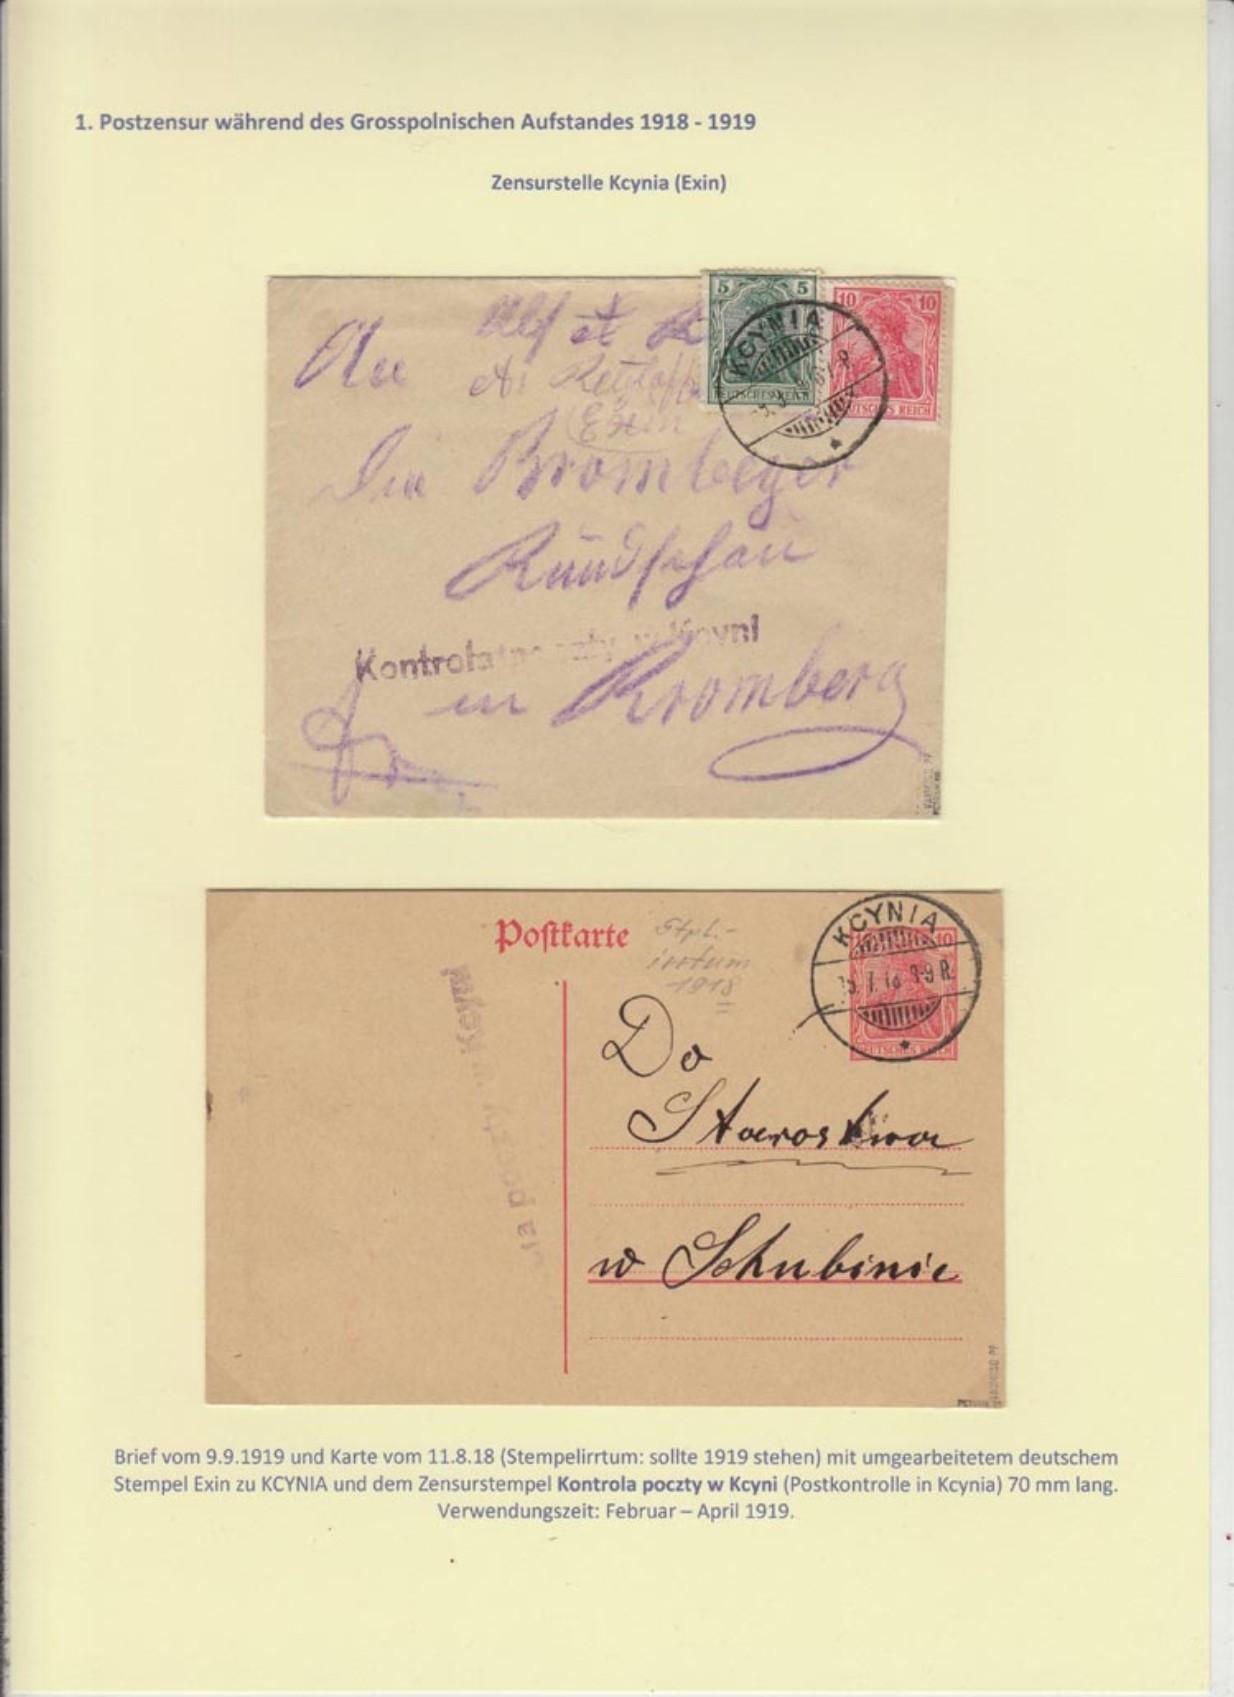 1. Postzensur während des Grosspolnischen Aufstandes 1918 - 1919
Zensurstelle Kcynia (Exin)
5 5
10 10
KCYNIA
DEUTSCHES REICH
DEUTSCHES REICH
An
Exin
Die Bromberger
Rundschau
Kontrola poczty w Kcyni
in Bromberg
Postkarte
Stpl.-
irrtum
1918
KCYNIA
10
8-9 R.
DEUTSCHES REICH
poczty w Kcyni
Do
Starostwa
w Schubinie
Brief vom 9.9.1919 und Karte vom 11.8.18 (Stempelirrtum: sollte 1919 stehen) mit umgearbeitetem deutschem
Stempel Exin zu KCYNIA und dem Zensurstempel Kontrola poczty w Kcyni (Postkontrolle in Kcynia) 70 mm lang.
Verwendungszeit: Februar – April 1919.